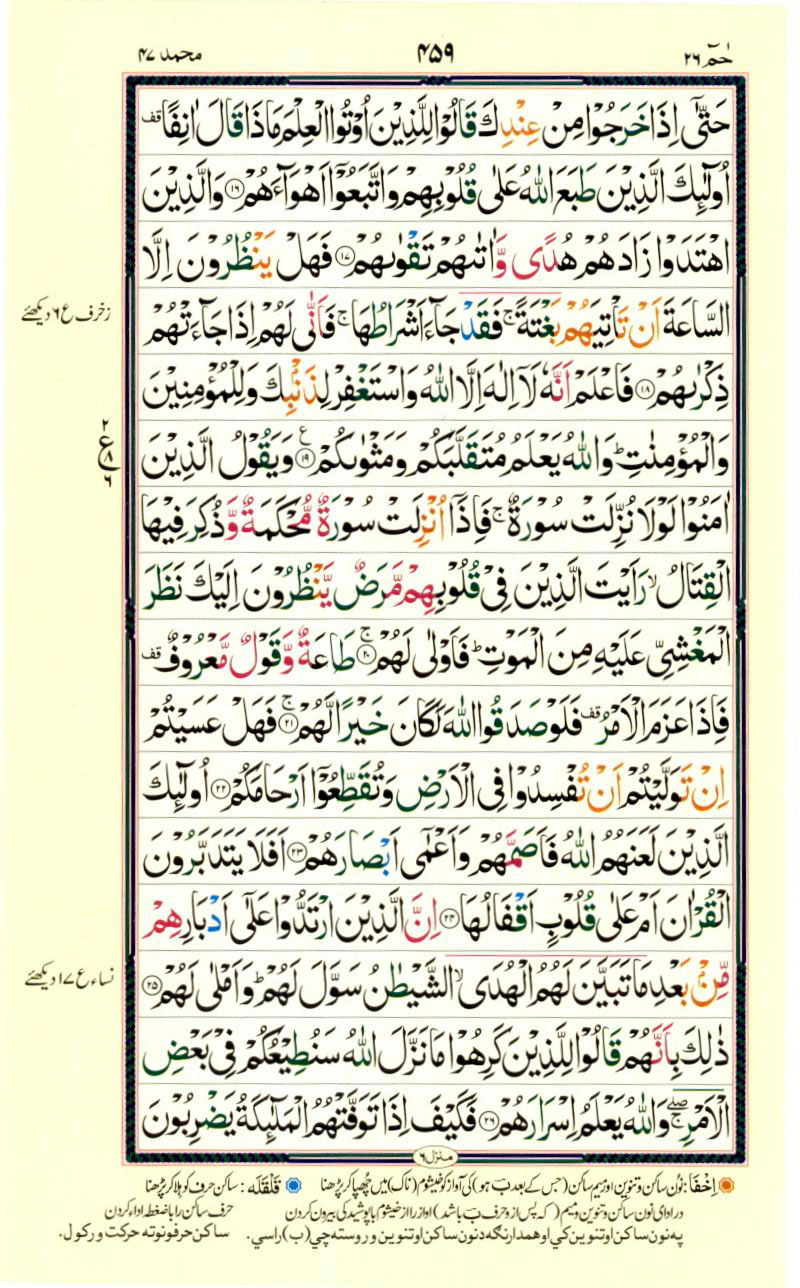 حٰمٓ ۲۶
۴۵۹
محمد ۴۷
حَتّٰۤى اِذَا خَرَجُوْا مِنْ عِنْدِكَ قَالُوْا لِلَّذِيْنَ اُوْتُوا الْعِلْمَ مَاذَا قَالَ اٰنِفًا قف
اُولٰٓئِكَ الَّذِيْنَ طَبَعَ اللّٰهُ عَلٰى قُلُوْبِهِمْ وَاتَّبَعُوْۤا اَهْوَآءَهُمْ ۝۱۶ وَالَّذِيْنَ
اهْتَدَوْا زَادَهُمْ هُدًى وَّاٰتٰىهُمْ تَقْوٰىهُمْ ۝۱۷ فَهَلْ يَنْظُرُوْنَ اِلَّا
السَّاعَةَ اَنْ تَاْتِيَهُمْ بَغْتَةً ۚ فَقَدْ جَآءَ اَشْرَاطُهَا ۚ فَاَنّٰى لَهُمْ اِذَا جَآءَتْهُمْ
زخرف ع۶ دیکھئے
ذِكْرٰىهُمْ ۝۱۸ فَاعْلَمْ اَنَّهٗ لَاۤ اِلٰهَ اِلَّا اللّٰهُ وَاسْتَغْفِرْ لِذَنْۢبِكَ وَلِلْمُؤْمِنِيْنَ
وَالْمُؤْمِنٰتِ ؕ وَاللّٰهُ يَعْلَمُ مُتَقَلَّبَكُمْ وَمَثْوٰىكُمْ ۝۱۹ ع وَيَقُوْلُ الَّذِيْنَ
۲
ع ۸
۶
اٰمَنُوْا لَوْلَا نُزِّلَتْ سُوْرَةٌ ۚ فَاِذَاۤ اُنْزِلَتْ سُوْرَةٌ مُّحْكَمَةٌ وَّذُكِرَ فِيْهَا
الْقِتَالُ ۙ رَاَيْتَ الَّذِيْنَ فِيْ قُلُوْبِهِمْ مَّرَضٌ يَّنْظُرُوْنَ اِلَيْكَ نَظَرَ
الْمَغْشِيِّ عَلَيْهِ مِنَ الْمَوْتِ ؕ فَاَوْلٰى لَهُمْ ۝۲۰ ۚ طَاعَةٌ وَّقَوْلٌ مَّعْرُوْفٌ قف
فَاِذَا عَزَمَ الْاَمْرُ قف فَلَوْ صَدَقُوا اللّٰهَ لَكَانَ خَيْرًا لَّهُمْ ۝۲۱ ۚ فَهَلْ عَسَيْتُمْ
اِنْ تَوَلَّيْتُمْ اَنْ تُفْسِدُوْا فِى الْاَرْضِ وَتُقَطِّعُوْۤا اَرْحَامَكُمْ ۝۲۲ اُولٰٓئِكَ
الَّذِيْنَ لَعَنَهُمُ اللّٰهُ فَاَصَمَّهُمْ وَاَعْمٰۤى اَبْصَارَهُمْ ۝۲۳ اَفَلَا يَتَدَبَّرُوْنَ
الْقُرْاٰنَ اَمْ عَلٰى قُلُوْبٍ اَقْفَالُهَا ۝۲۴ اِنَّ الَّذِيْنَ ارْتَدُّوْا عَلٰۤى اَدْبَارِهِمْ
مِّنْۢ بَعْدِ مَا تَبَيَّنَ لَهُمُ الْهُدَى ۙ الشَّيْطٰنُ سَوَّلَ لَهُمْ ؕ وَاَمْلٰى لَهُمْ ۝۲۵
نساء ع ۱۷ دیکھئے
ذٰلِكَ بِاَنَّهُمْ قَالُوْا لِلَّذِيْنَ كَرِهُوْا مَا نَزَّلَ اللّٰهُ سَنُطِيْعُكُمْ فِيْ بَعْضِ
الْاَمْرِ ۖۚ وَاللّٰهُ يَعْلَمُ اِسْرَارَهُمْ ۝۲۶ فَكَيْفَ اِذَا تَوَفَّتْهُمُ الْمَلٰٓئِكَةُ يَضْرِبُوْنَ
منزل ۶
اِخْفَا: نُون ساکن و تنوین اور میم ساکن (جس کے بعد ب ہو) کی آواز کو خیشوم (ناک) میں چُھپا کر پڑھنا قَلْقَلَه: ساکن حرف کو ہلا کر پڑھنا
در ادای نون ساکن و تنوین و میم (که پس از و حرف ب باشد) اواز را از خیشوم با پوشیدگی بیرون کردن حرف ساکن را با ضغطه اداء کردن
په نون ساکن او تنوین کي او همدارنګه د نون ساکن او تنوین وروسته چي (ب) راسي. ساکن حرفونو ته حرکت ورکول.